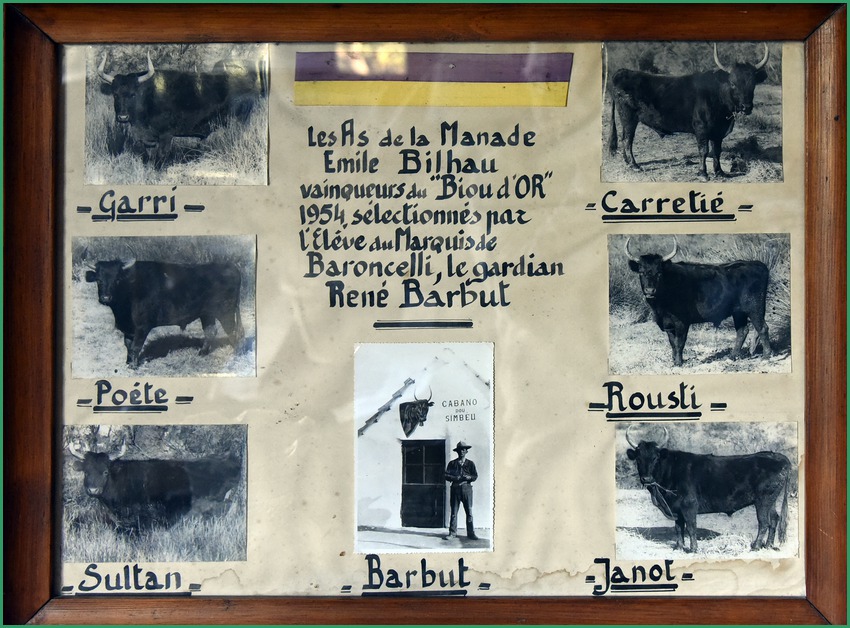 Les As de la Manade
Emile Bilhau
vainqueurs du "Biou d'OR"
1954, sélectionnés par
l'Elève du Marquis de
Baroncelli, le gardian
René Barbut
Garri
Carretié
Poéte
Rousti
CABANO
DOU
SIMBEU
Sultan
Barbut
Janot